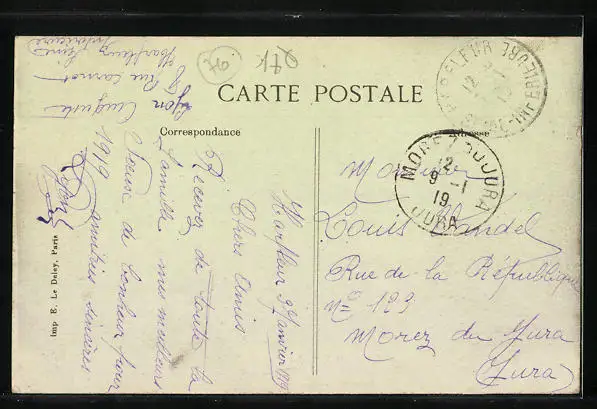 CARTE POSTALE
Correspondance
Adresse
Harfleur 9 Janvier 1919
Chers Amis
Recevez de toute la
famille mes meilleurs
de bonheur pour
1919 amitiés sincères
Auguste
Rue Carnot
Harfleur Seine
Inférieure
Monsieur
Louis
Rue de la République
N° 123
Morez du Jura
Jura
MOREZ-DU-JURA
12
9 -1
19
JURA
HARFLEUR
SEINE-INFRE
12
Imp E. Le Deley, Paris